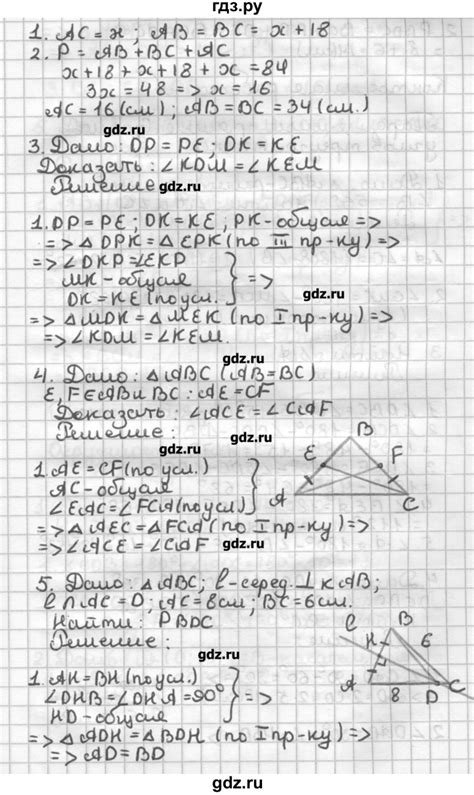 гдз.ру
1. AC = x; AB = BC = x + 18
2. P = AB + BC + AC
x + 18 + x + 18 + x = 84
3x = 48 => x = 16
AC = 16 (см); AB = BC = 34 (см.)
gdz.ru
3. Дано: DP = PE; DK = KE
Доказать: ∠KDM = ∠KEM
Решение
gdz.ru
1. DP = PE; DK = KE; PK - общая =>
=> △DPK = △EPK (по III пр-ку) =>
=> ∠DKP = ∠EKP
MK - общая
DK = KE (по усл.) } =>
gdz.ru
=> △MDK = △MEK (по I пр-ку) =>
=> ∠KDM = ∠KEM.
gdz.ru
4. Дано: △ABC (AB = BC)
E, F ∈ AB и BC : AE = CF
Доказать: ∠ACE = ∠CAF
Решение:
gdz.ru
B
E
F
A
C
1. AE = CF (по усл.)
AC - общая
∠EAC = ∠FCA (по усл.) }
gdz.ru
=> △AEC = △FCA (по I пр-ку) =>
=> ∠ACE = ∠CAF
gdz.ru
5. Дано: △ABC; l - серед. ⊥ к AB;
l ∩ AC = D; AC = 8 см; BC = 6 см.
Найти: P BDC
Решение:
gdz.ru
l
B
H
6
A
8
D
C
1. AH = BH (по усл.)
∠DHB = ∠DHA = 90° } =>
HD - общая
gdz.ru
=> △ADH = △BDH (по I пр-ку) =>
=> AD = BD
gdz.ru
gdz.ru